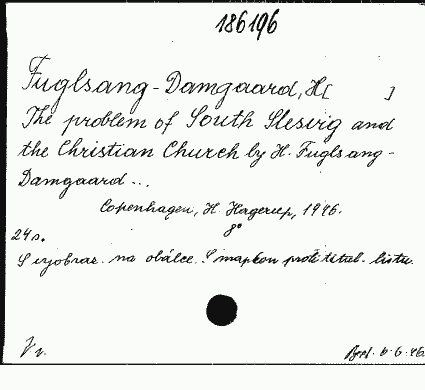 186196
Fuglsang-Damgaard, H[ ]
The problem of South Slesvig and
the Christian Church by H. Fuglsang-
Damgaard...
Copenhagen, H. Hagerup, 1946.
8°
24 s.
S vyobraz. na obálce. S mapkou proti titul. listu.